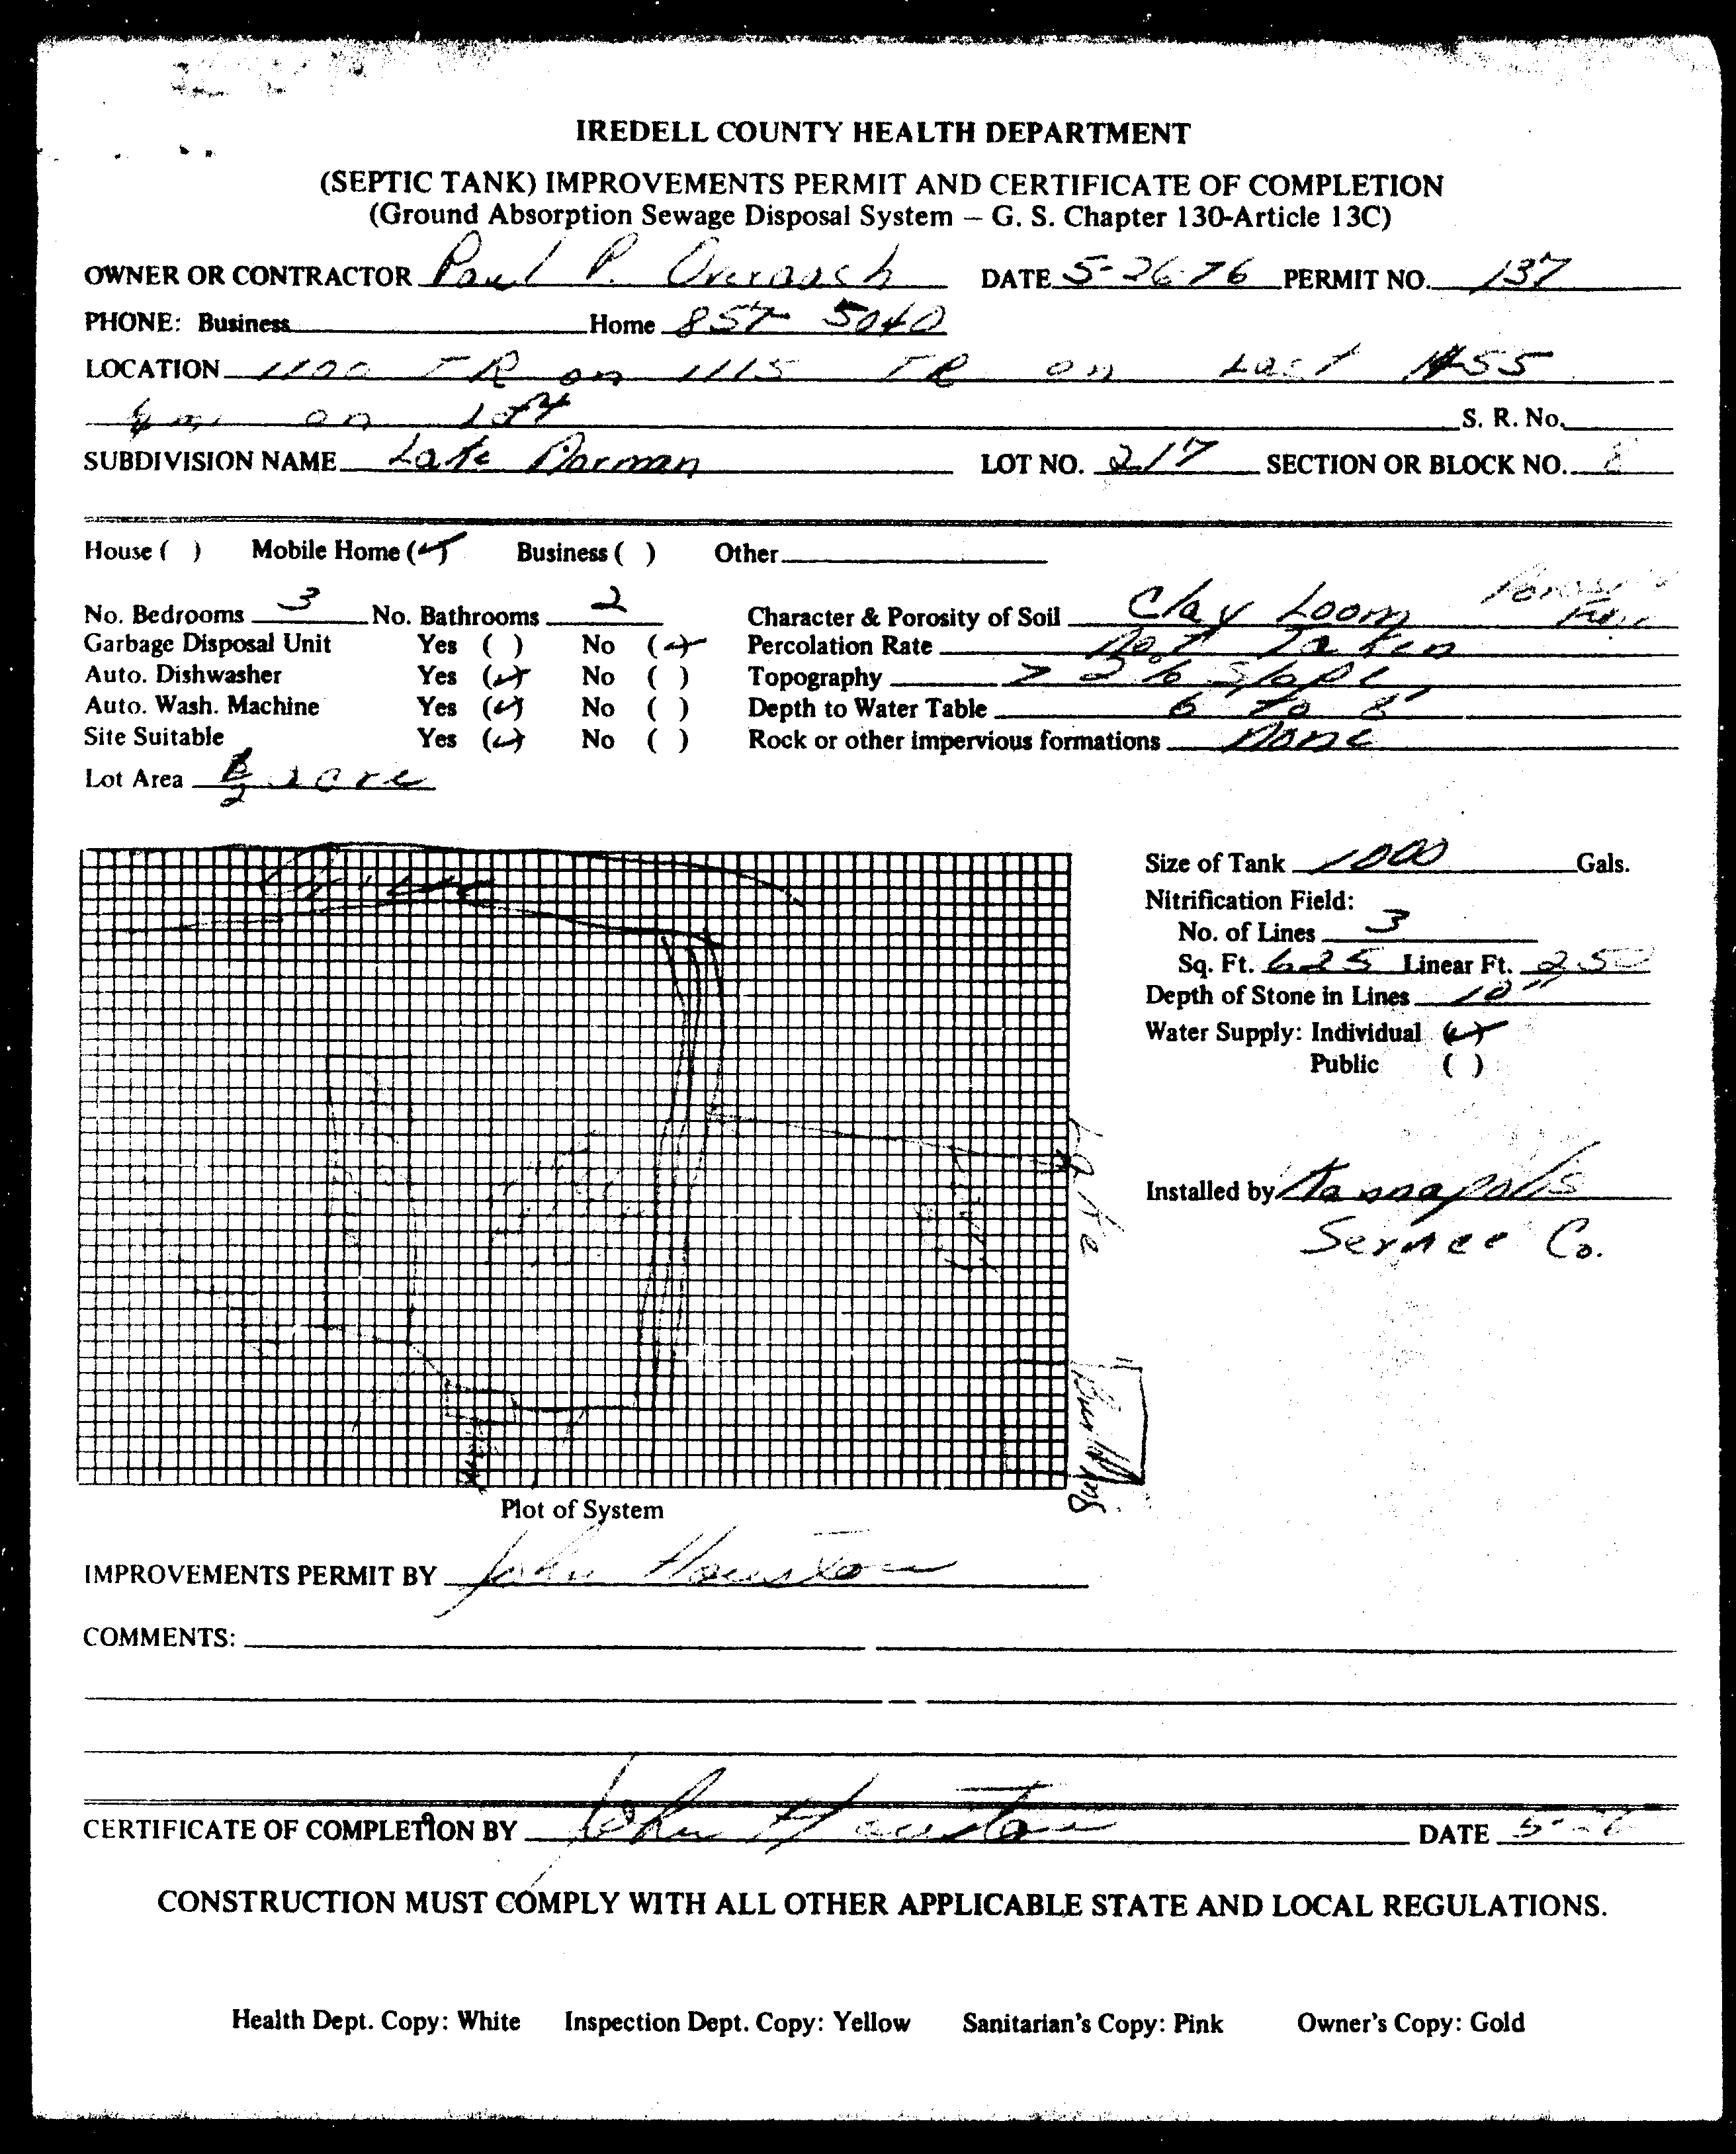 IREDELL COUNTY HEALTH DEPARTMENT
(SEPTIC TANK) IMPROVEMENTS PERMIT AND CERTIFICATE OF COMPLETION
(Ground Absorption Sewage Disposal System – G. S. Chapter 130-Article 13C)
OWNER OR CONTRACTOR Paul P. Overcash DATE 5-26-76 PERMIT NO. 137
PHONE: Business Home 857 5040
LOCATION 1100 TR on 1115 TR on Last #55
on left S. R. No.
SUBDIVISION NAME Lake Norman LOT NO. 217 SECTION OR BLOCK NO.
House ( ) Mobile Home (✓) Business ( ) Other
No. Bedrooms 3 No. Bathrooms 2 Character & Porosity of Soil Clay Loom
Garbage Disposal Unit Yes ( ) No (✓) Percolation Rate Not Taken
Auto. Dishwasher Yes (✓) No ( ) Topography > 2% Slope
Auto. Wash. Machine Yes (✓) No ( ) Depth to Water Table 6 to 8'
Site Suitable Yes (✓) No ( ) Rock or other impervious formations None
Lot Area 1/2 acre
Size of Tank 1000 Gals.
Nitrification Field:
No. of Lines 3
Sq. Ft. 625 Linear Ft. 250
Depth of Stone in Lines 10"
Water Supply: Individual (✓)
Public ( )
Lake
Installed by Kannapolis
Service Co.
Plot of System
IMPROVEMENTS PERMIT BY John Houston
COMMENTS:
CERTIFICATE OF COMPLETION BY John Houston DATE
CONSTRUCTION MUST COMPLY WITH ALL OTHER APPLICABLE STATE AND LOCAL REGULATIONS.
Health Dept. Copy: White Inspection Dept. Copy: Yellow Sanitarian's Copy: Pink Owner's Copy: Gold